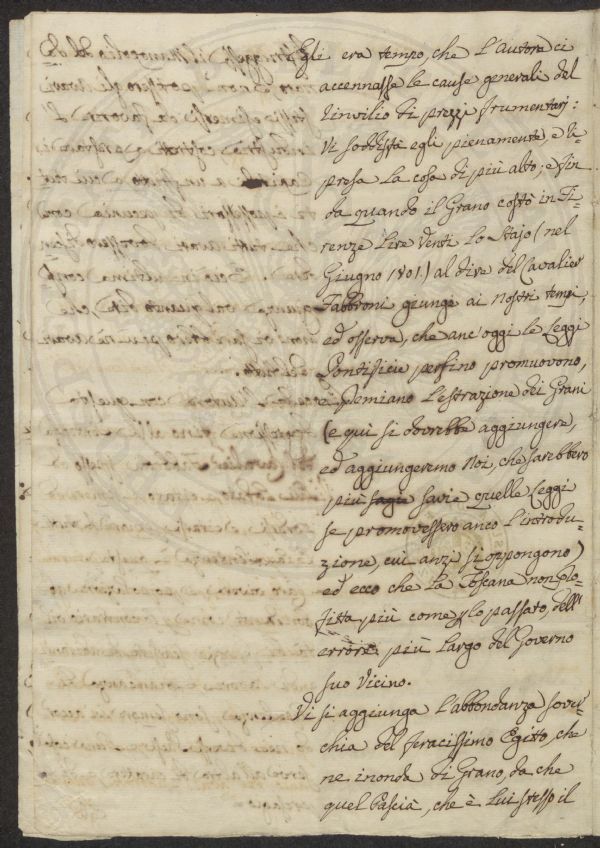 Egli era tempo, che l'autore ci
accennasse le cause generali del
l'invilio di prezzi frumentarj:
Vi soddisfà egli pienamente, e ri-
presa la cosa di più alto, e fin
da quando il Grano costò in Fi-
renze Lire Venti lo Stajo (nel
Giugno 1801.) al dire del Cavalier
Fabbroni giunge ai nostri tempi;
ed osserva, che anc'oggi le Leggi
Pontificie perfino promuovono,
e Premiano l'estrazione dei Grani
(e quì si dovrebbe aggiungere,
ed aggiungeremo Noi, che sarebbero
più savie quelle Leggi
se promovessero anco l'introdu-
zione, cui anzi si oppongono)
ed ecco che la Toscana non pro-
fitta più come p lo passato, dell'
errore più largo del Governo
suo Vicino.
Vi si aggiunga l'abbondanza sover-
chia del feracissimo Egitto, che
ne inonda di Grano, da che
quel Pascià, che è lui stesso il